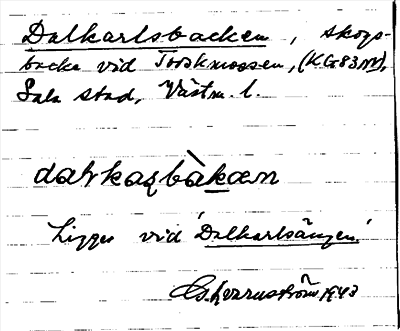 Dalkarlsbacken, skogs-
backe vid Torskmossen, (KG83NV),
Sala stad, Västm. l.
dalrkaqbàkæn
Ligger vid 'Dalkarlsängen'.
G. Kvarnström 1943